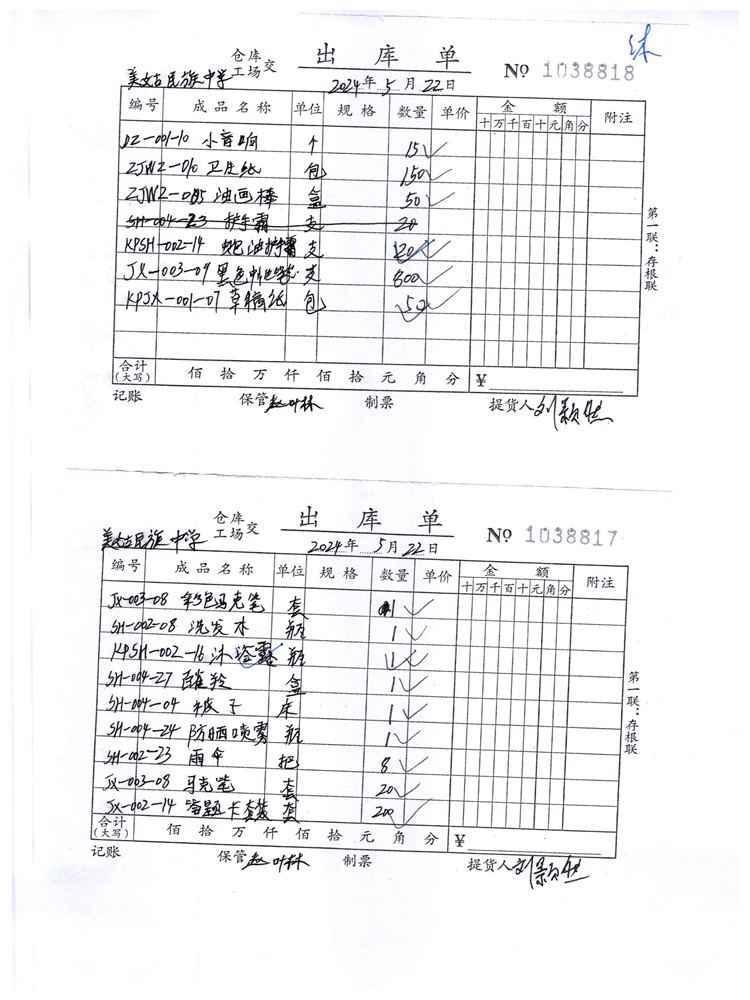 沐
仓库 出库单
美姑民族中学 工场交 2024年5月22日 № 1038818
编号 成品名称 单位 规格 数量 单价 金额 附注
十万千百十元角分
DZ-001-10 小音响 个 15
ZJWZ-010 卫生纸 包 150
ZJWZ-085 油画棒 盒 50
SH-004-23 护手霜 支 20
KPSH-002-14 蛇油护手霜 支 120
JX-003-09 黑色中性笔 支 800
KPJX-001-07 草稿纸 包 50
合计(大写) 佰拾万仟佰拾元角分 ¥
记账 保管 赵叶林 制票 提货人 刘颖
第一联:存根联
仓库 出库单
美姑民族中学 工场交 2024年5月22日 № 1038817
编号 成品名称 单位 规格 数量 单价 金额 附注
十万千百十元角分
JX-003-08 彩色马克笔 套 1
SH-002-08 洗发水 瓶 1
KPSH-002-16 沐浴露 瓶 1
SH-004-27 盒 1
SH-004-04 被子 床 1
SH-004-24 防晒喷雾 瓶 1
SH-002-23 雨伞 把 8
JX-003-08 马克笔 套 20
JX-002-14 答题卡套装 套 200
合计(大写) 佰拾万仟佰拾元角分 ¥
记账 保管 赵叶林 制票 提货人 刘颖
第一联:存根联